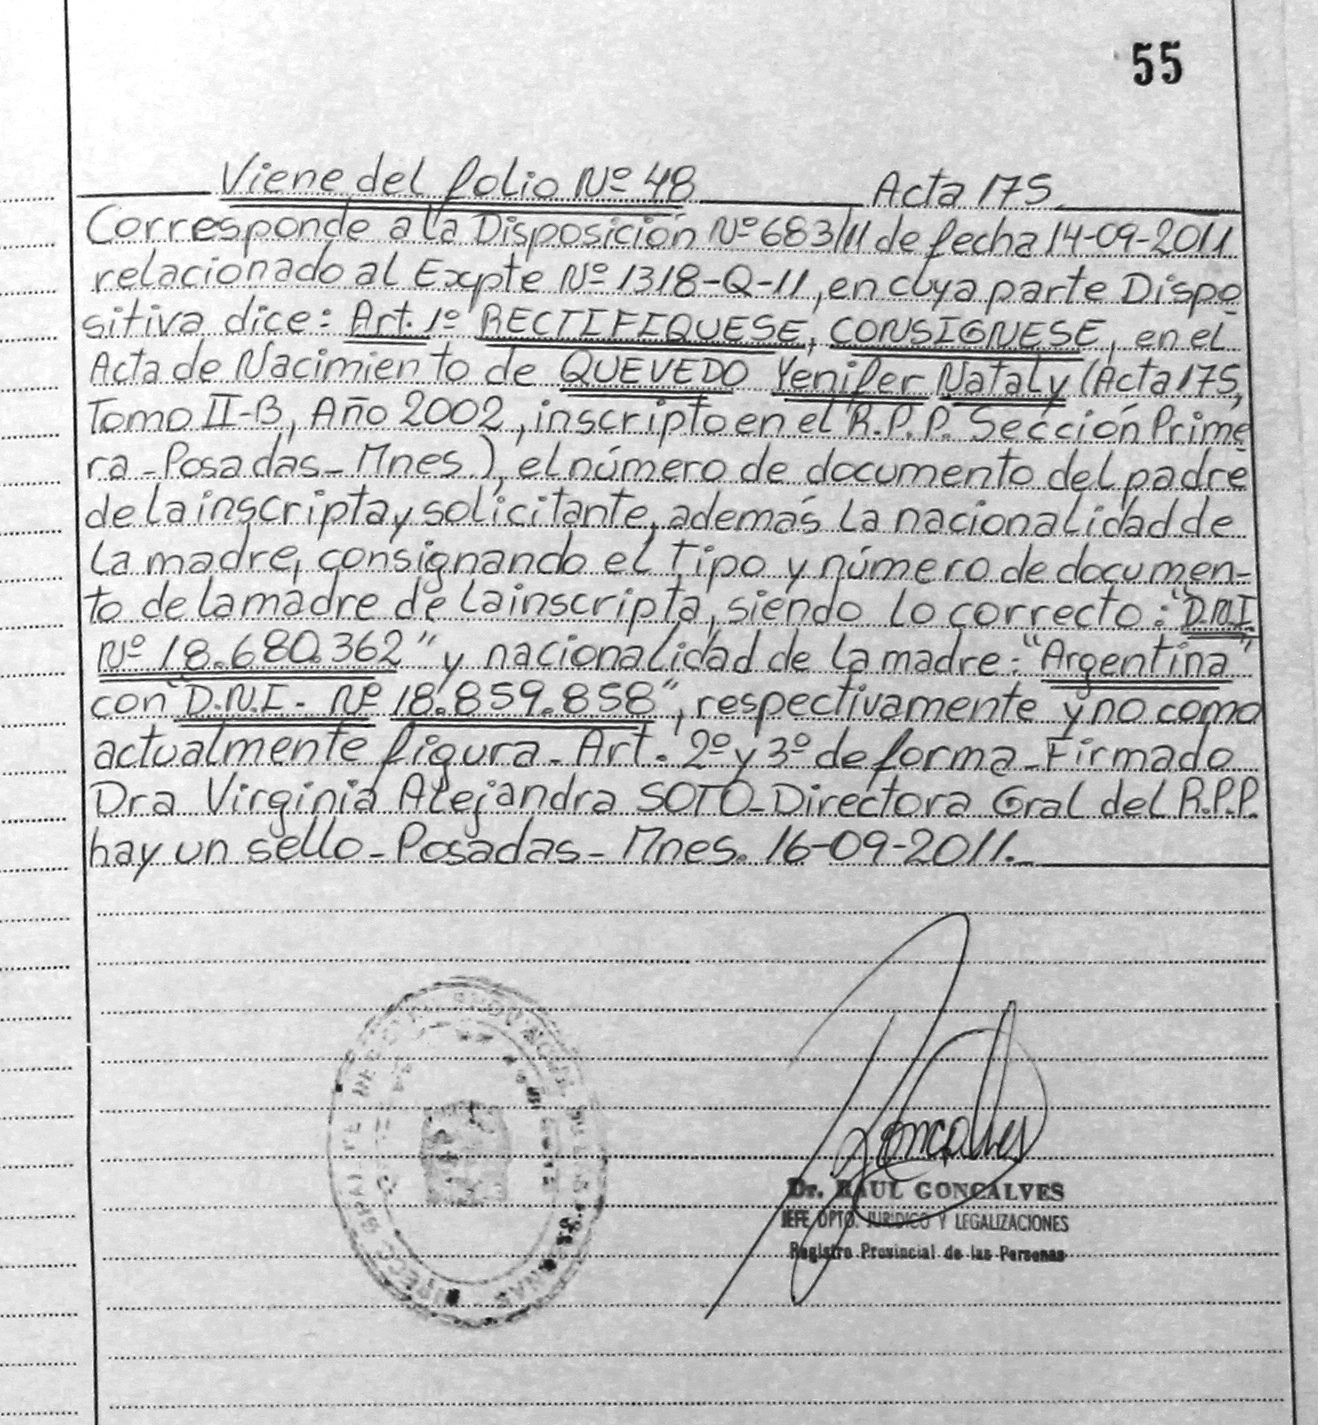 55
Viene del folio Nº 48 Acta 175
Corresponde a la Disposición Nº 683/11 de fecha 14-09-2011
relacionado al Expte Nº 1318-Q-11, en cuya parte Dispo
sitiva dice: Art. 1º RECTIFIQUESE, CONSIGNESE, en el
Acta de Nacimiento de QUEVEDO Yenifer Nataly (Acta 175,
Tomo II-B, Año 2002, inscripto en el R.P.P. Sección Prime
ra - Posadas - Mnes.), el número de documento del padre
de la inscripta y solicitante, además la nacionalidad de
la madre, consignando el tipo y número de documen-
to de la madre de la inscripta, siendo lo correcto: "D.N.I.
Nº 18.680.362" y nacionalidad de la madre: "Argentina"
con "D.N.I. - Nº 18.859.858", respectivamente y no como
actualmente figura - Art. 2º y 3º de forma - Firmado
Dra Virginia Alejandra SOTO - Directora Gral del R.P.P.
hay un sello - Posadas - Mnes. 16-09-2011.
Goncalves
Dr. RAUL GONCALVES
JEFE DPTO. JURIDICO Y LEGALIZACIONES
Registro Provincial de las Personas